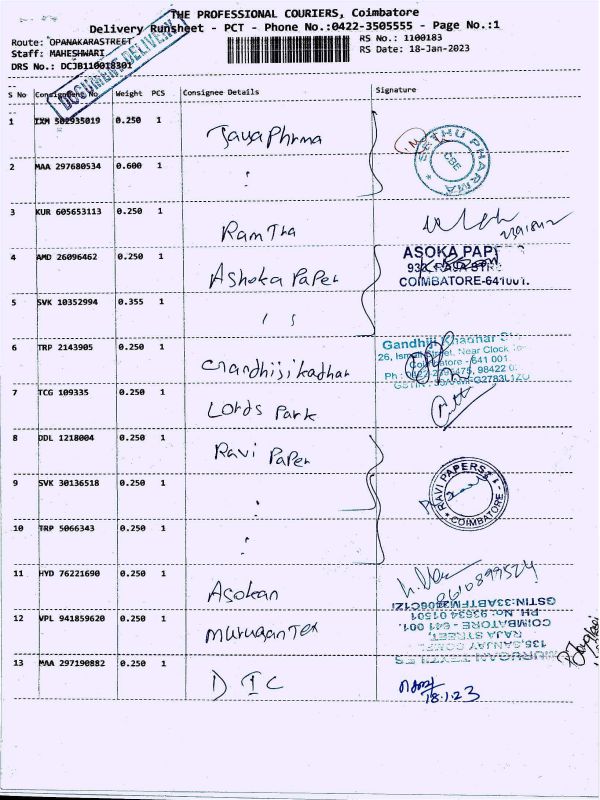 THE PROFESSIONAL COURIERS, Coimbatore
Delivery Runsheet - PCT - Phone No.:0422-3505555 - Page No.:1
Route: OPANAKARASTREET
Staff: MAHESHWARI
DRS No.: DCJB110018301
RS No.: 1100183
RS Date: 18-Jan-2023
DOCUMENT DELIVERY
S No Consignment No. Weight PCS Consignee Details Signature
1 IXM 502935019 0.250 1 Jaya Phrma
SETHU PHARMA
CBE
2 MAA 297680534 0.600 1
3 KUR 605653113 0.250 1 Ram Tha
4 AMD 26096462 0.250 1 Ashoka Paper
ASOKA PAP
COIMBATORE-641001.
5 SVK 10352994 0.355 1
6 TRP 2143905 0.250 1 Gandhiji kadhar
Gandhiji Khadhar
26, Street, Near Clock
Coimbatore - 641 001
7 TCG 109335 0.250 1 Lords Park
8 DDL 1218004 0.250 1 Ravi Paper
9 SVK 30136518 0.250 1
RAVI PAPERS
COIMBATORE
10 TRP 5066343 0.250 1
11 HYD 76221690 0.250 1 Asokan
12 VPL 941859620 0.250 1 Murugan Tex
MURUGAN TEXTILES
RAJA STREET,
COIMBATORE - 641 001.
PH. No: 93634 01501
13 MAA 297190882 0.250 1 DIC
18.1.23